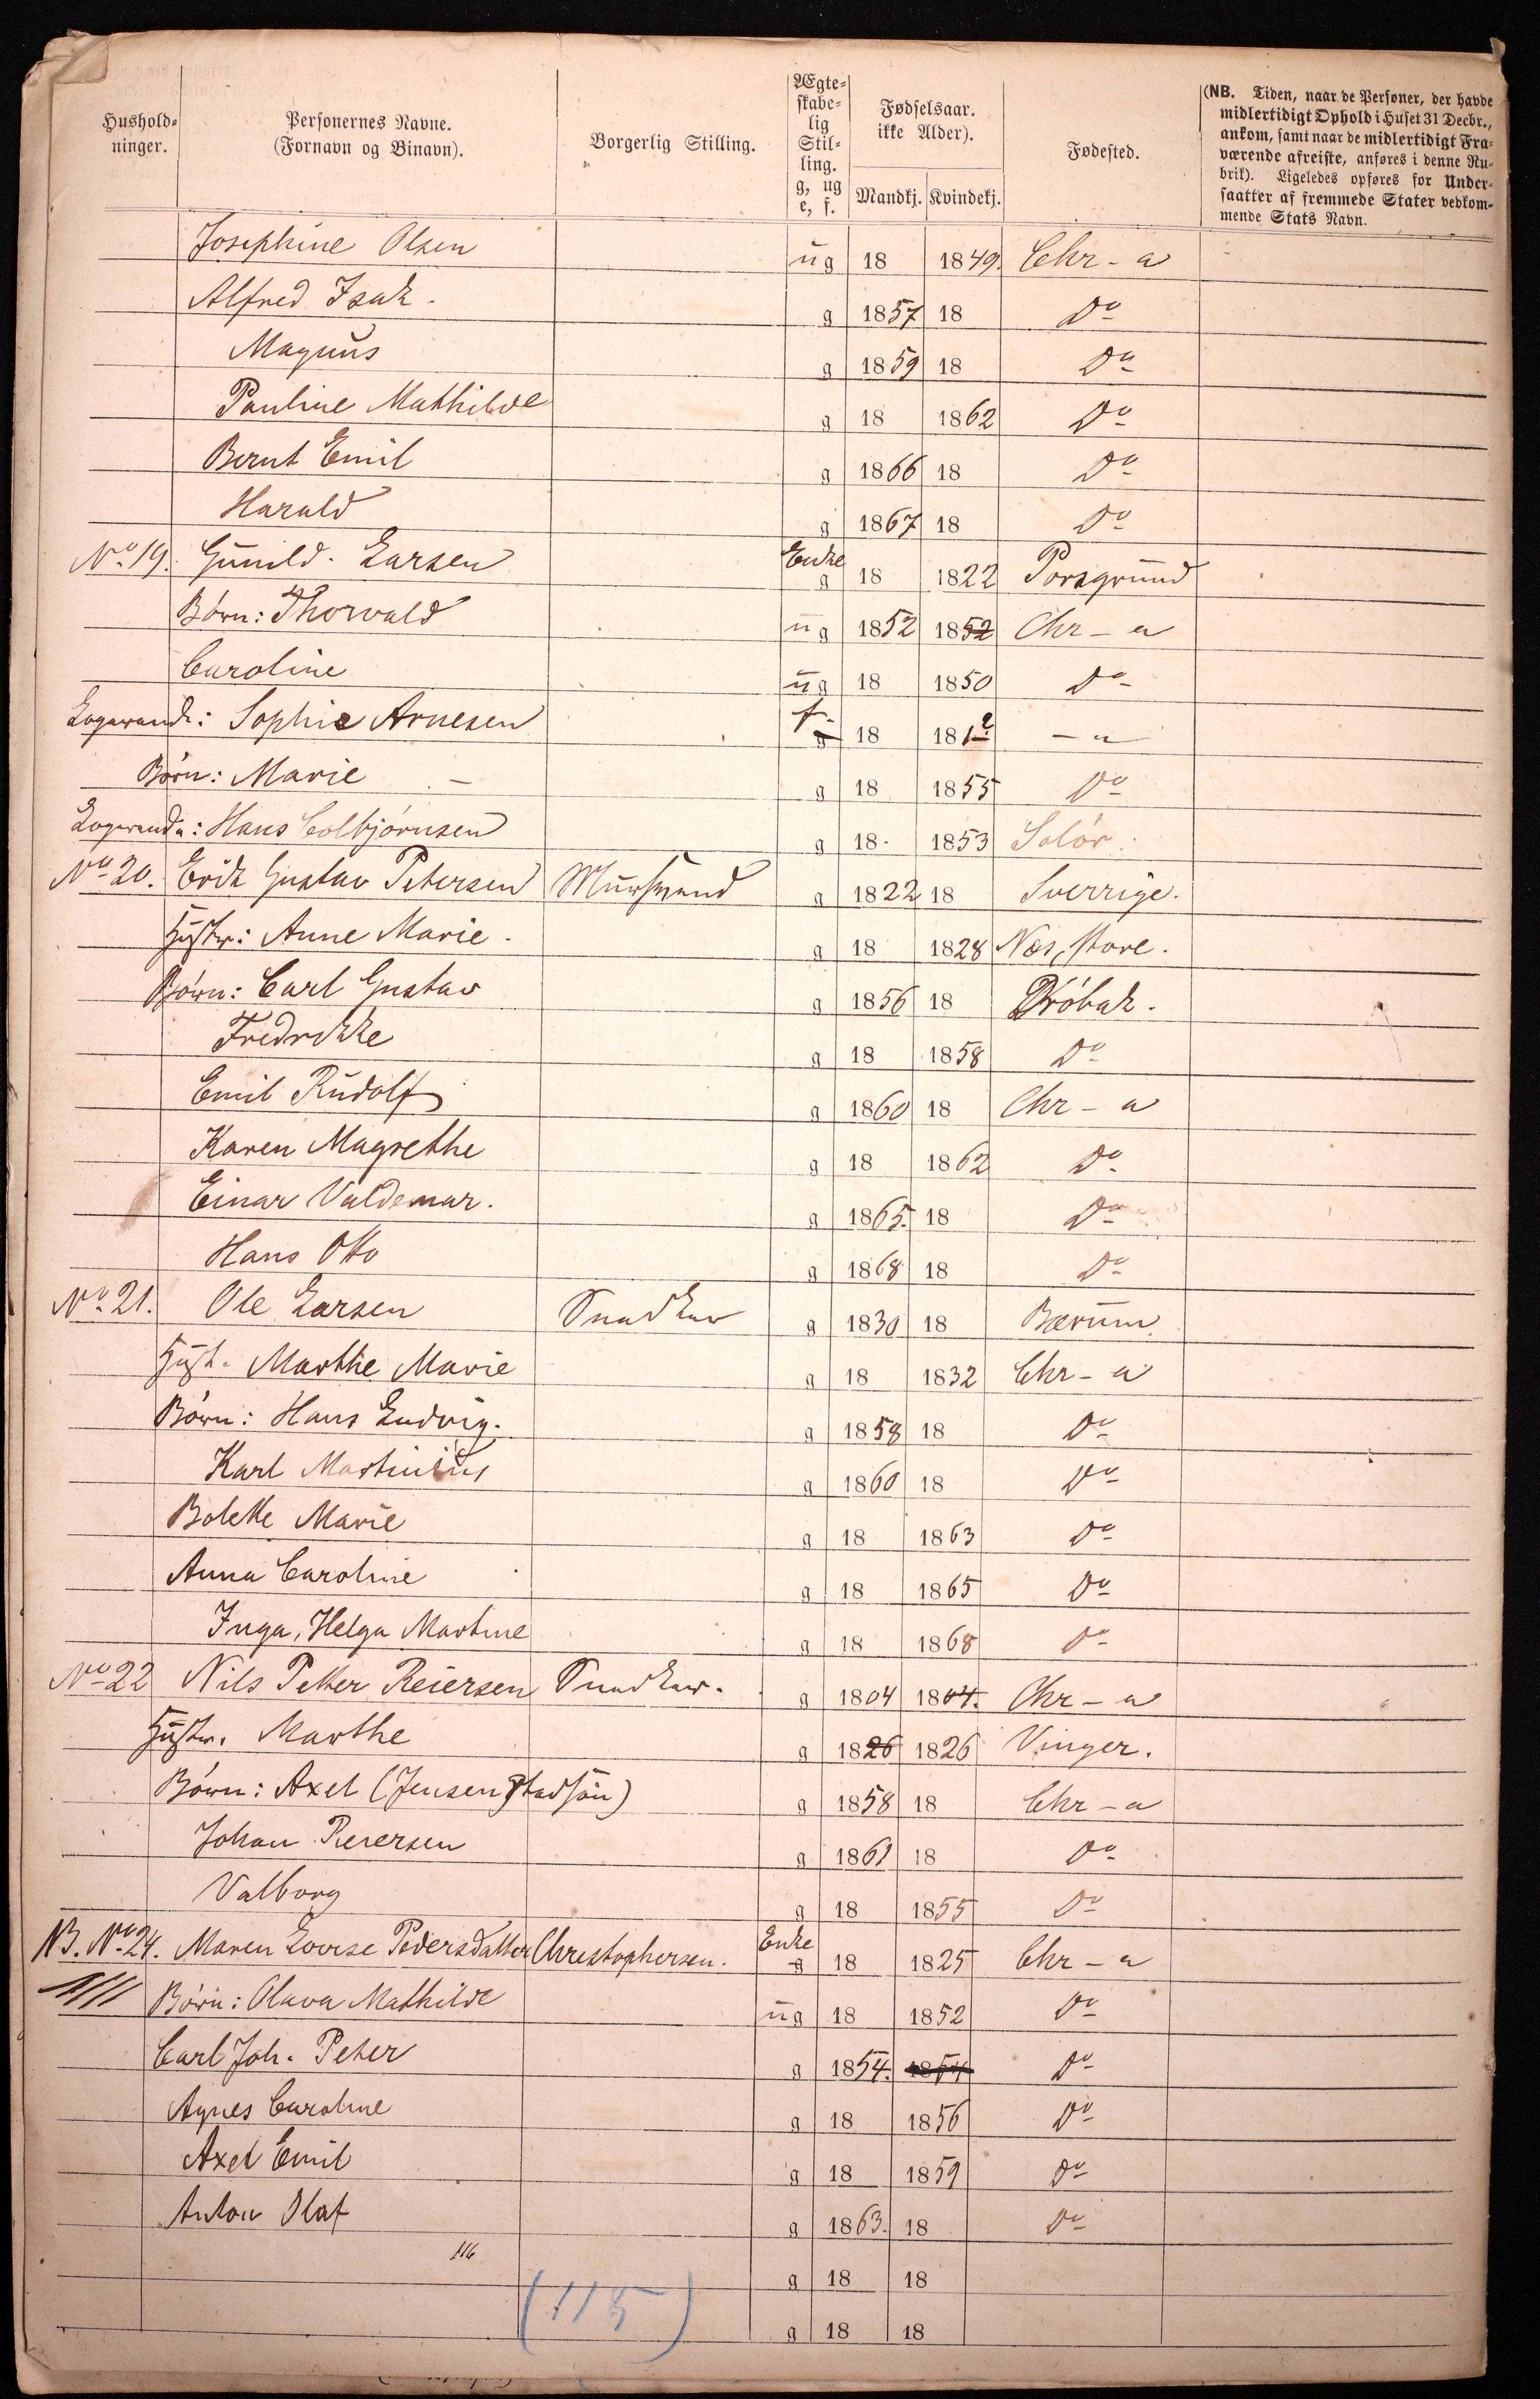 Hushold-
ninger.
Personernes Navne.
(Fornavn og Binavn).
Borgerlig Stilling.
Ægte-
skabe-
lig
Stil-
ling.
g, ug
e, f.
Fødselsaar.
ikke Alder).
Mandkj. Kvindekj.
Fødested.
(NB. Tiden, naar de Personer, der havde
midlertidigt Ophold i Huset 31 Decbr.,
ankom, samt naar de midlertidigt Fra-
værende afreiste, anføres i denne Ru-
brik). Ligeledes opføres for Under-
saatter af fremmede Stater vedkom-
mende Stats Navn.
Josephine Olsen ug 18 1849. Chr - a
Alfred Isak. g 1857 18 Do
Magnus g 1859 18 Do
Pauline Mathilde g 18 1862 Do
Bernt Emil g 1866 18 Do
Harald g 1867 18 Do
No 19. Gunild Larsen Enke g 18 1822 Porsgrund
Børn: Thorvald ug 1852 1852 Chr - a
Caroline ug 18 1850 Do
Logerande: Sophie Arnesen f. g 18 181? - " -
Børn: Marie - g 18 1855 Do
Logerande: Hans Colbjørnsen g 18 1853 Solør.
No 20. Erik Gustav Petersen Muursvend g 1822 18 Sverrige.
Hustr: Anne Marie. g 18 1828 Næs, store.
Børn: Carl Gustav g 1856 18 Drøbak.
Fredrikke g 18 1858 Do
Emil Rudolf g 1860 18 Chr - a
Karen Magrethe g 18 1862 Do
Einar Valdemar. g 1865. 18 Do
Hans Otto g 1868 18 Do
No 21. Ole Larsen Snedker g 1830 18 Bærum.
Hust. Marthe Marie g 18 1832 Chr - a
Børn: Hans Ludvig. g 1858 18 Do
Karl Martinius g 1860 18 Do
Bolette Marie g 18 1863 Do
Anna Caroline g 18 1865 Do
Inga, Helga Martine g 18 1868 Do
No 22 Nils Petter Reiersen Snedker. g 1804 1804. Chr - a
Hustr. Marthe g 1826 1826 Vinger.
Børn: Axel (Jensen Stedsøn) g 1858 18 Chr - a
Johan Reiersen g 1861 18 Do
Valborg g 18 1855 Do
NB. No 24. Maren Lovise Pedersdatter Christophersen. Enke g 18 1825 Chr - a
Børn: Olava Mathilde ug 18 1852 Do
Carl Joh. Peter g 1854. 1854 Do
Agnes Caroline g 18 1856 Do
Axel Emil g 18 1859 Do
Anton Olaf g 1863. 18 Do
116 g 18 18
(115) g 18 18